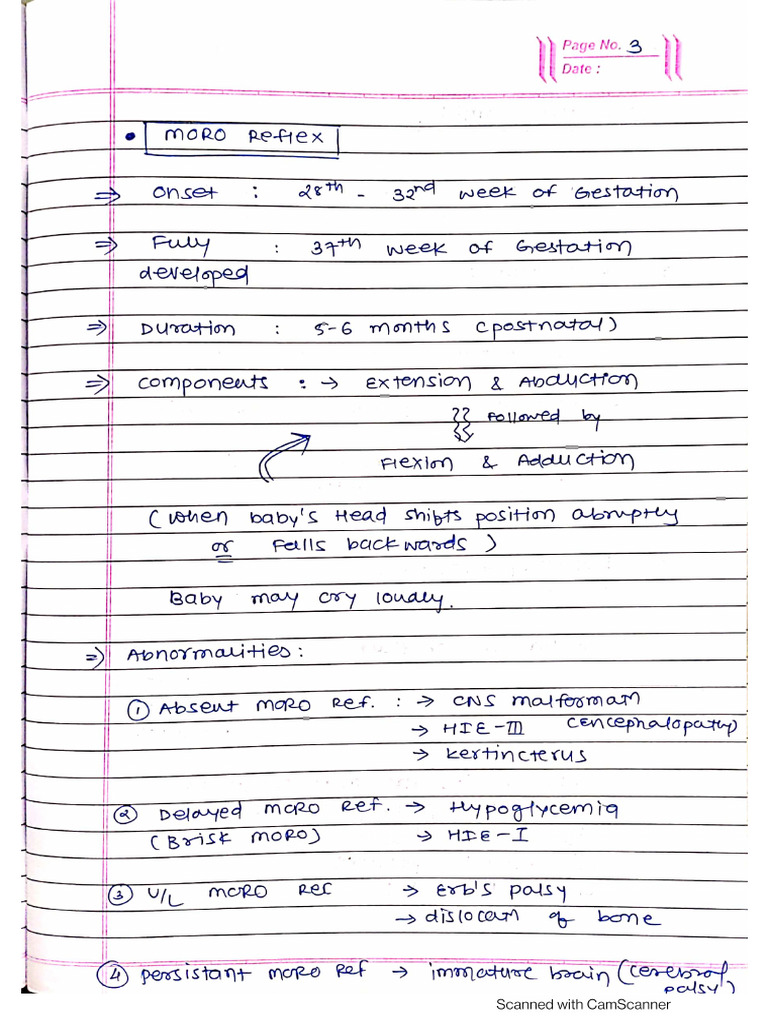 Page No. 3
Date :
• MORO Reflex
⇒ Onset : 28th - 32nd week of Gestation
⇒ Fully : 37th week of Gestation
developed
⇒ Duration : 5-6 months (postnatal)
⇒ Components : → Extension & Abduction
Followed by
Flexion & Adduction
(when baby's Head shifts position abruptly
or falls backwards)
Baby may cry loudly.
⇒ Abnormalities :
① Absent MORO Ref. : → CNS malformatn
→ HIE-III (encephalopathy)
→ kertincterus
② Delayed MORO Ref. → Hypoglycemia
(Brisk MORO) → HIE-I
③ U/L MORO Ref → Erb's palsy
→ dislocatn of bone
④ persistant MORO Ref → immature brain (cerebral
palsy)
Scanned with CamScanner